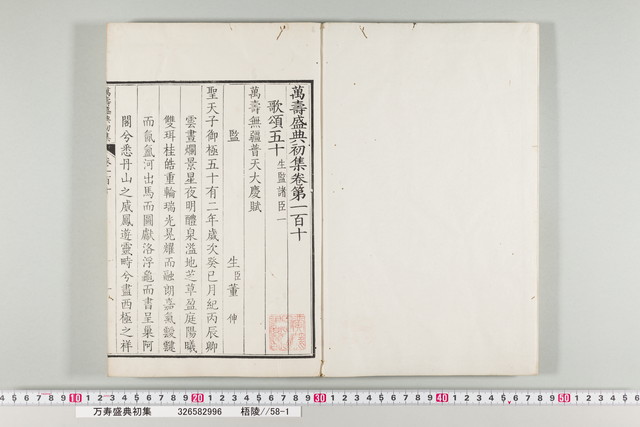 萬壽盛典初集卷第一百十
歌頌五十 生監諸臣一
萬壽無疆普天大慶賦
監 生臣董伸
聖天子御極五十有二年歲次癸巳月紀丙辰卿
雲晝爛景星夜明醴泉溢地芝草盈庭陽曦
雙珥桂皓重輪瑞光晃耀而融朗嘉氣靉靆
而氤氳河出馬而圖獻洛浮龜而書呈巢阿
閣兮悉丹山之威鳳遊靈畤兮盡西極之祥
萬壽盛典初集 卷一百十
10 20 30 40 50
万寿盛典初集 326582996 梧陵//58-1